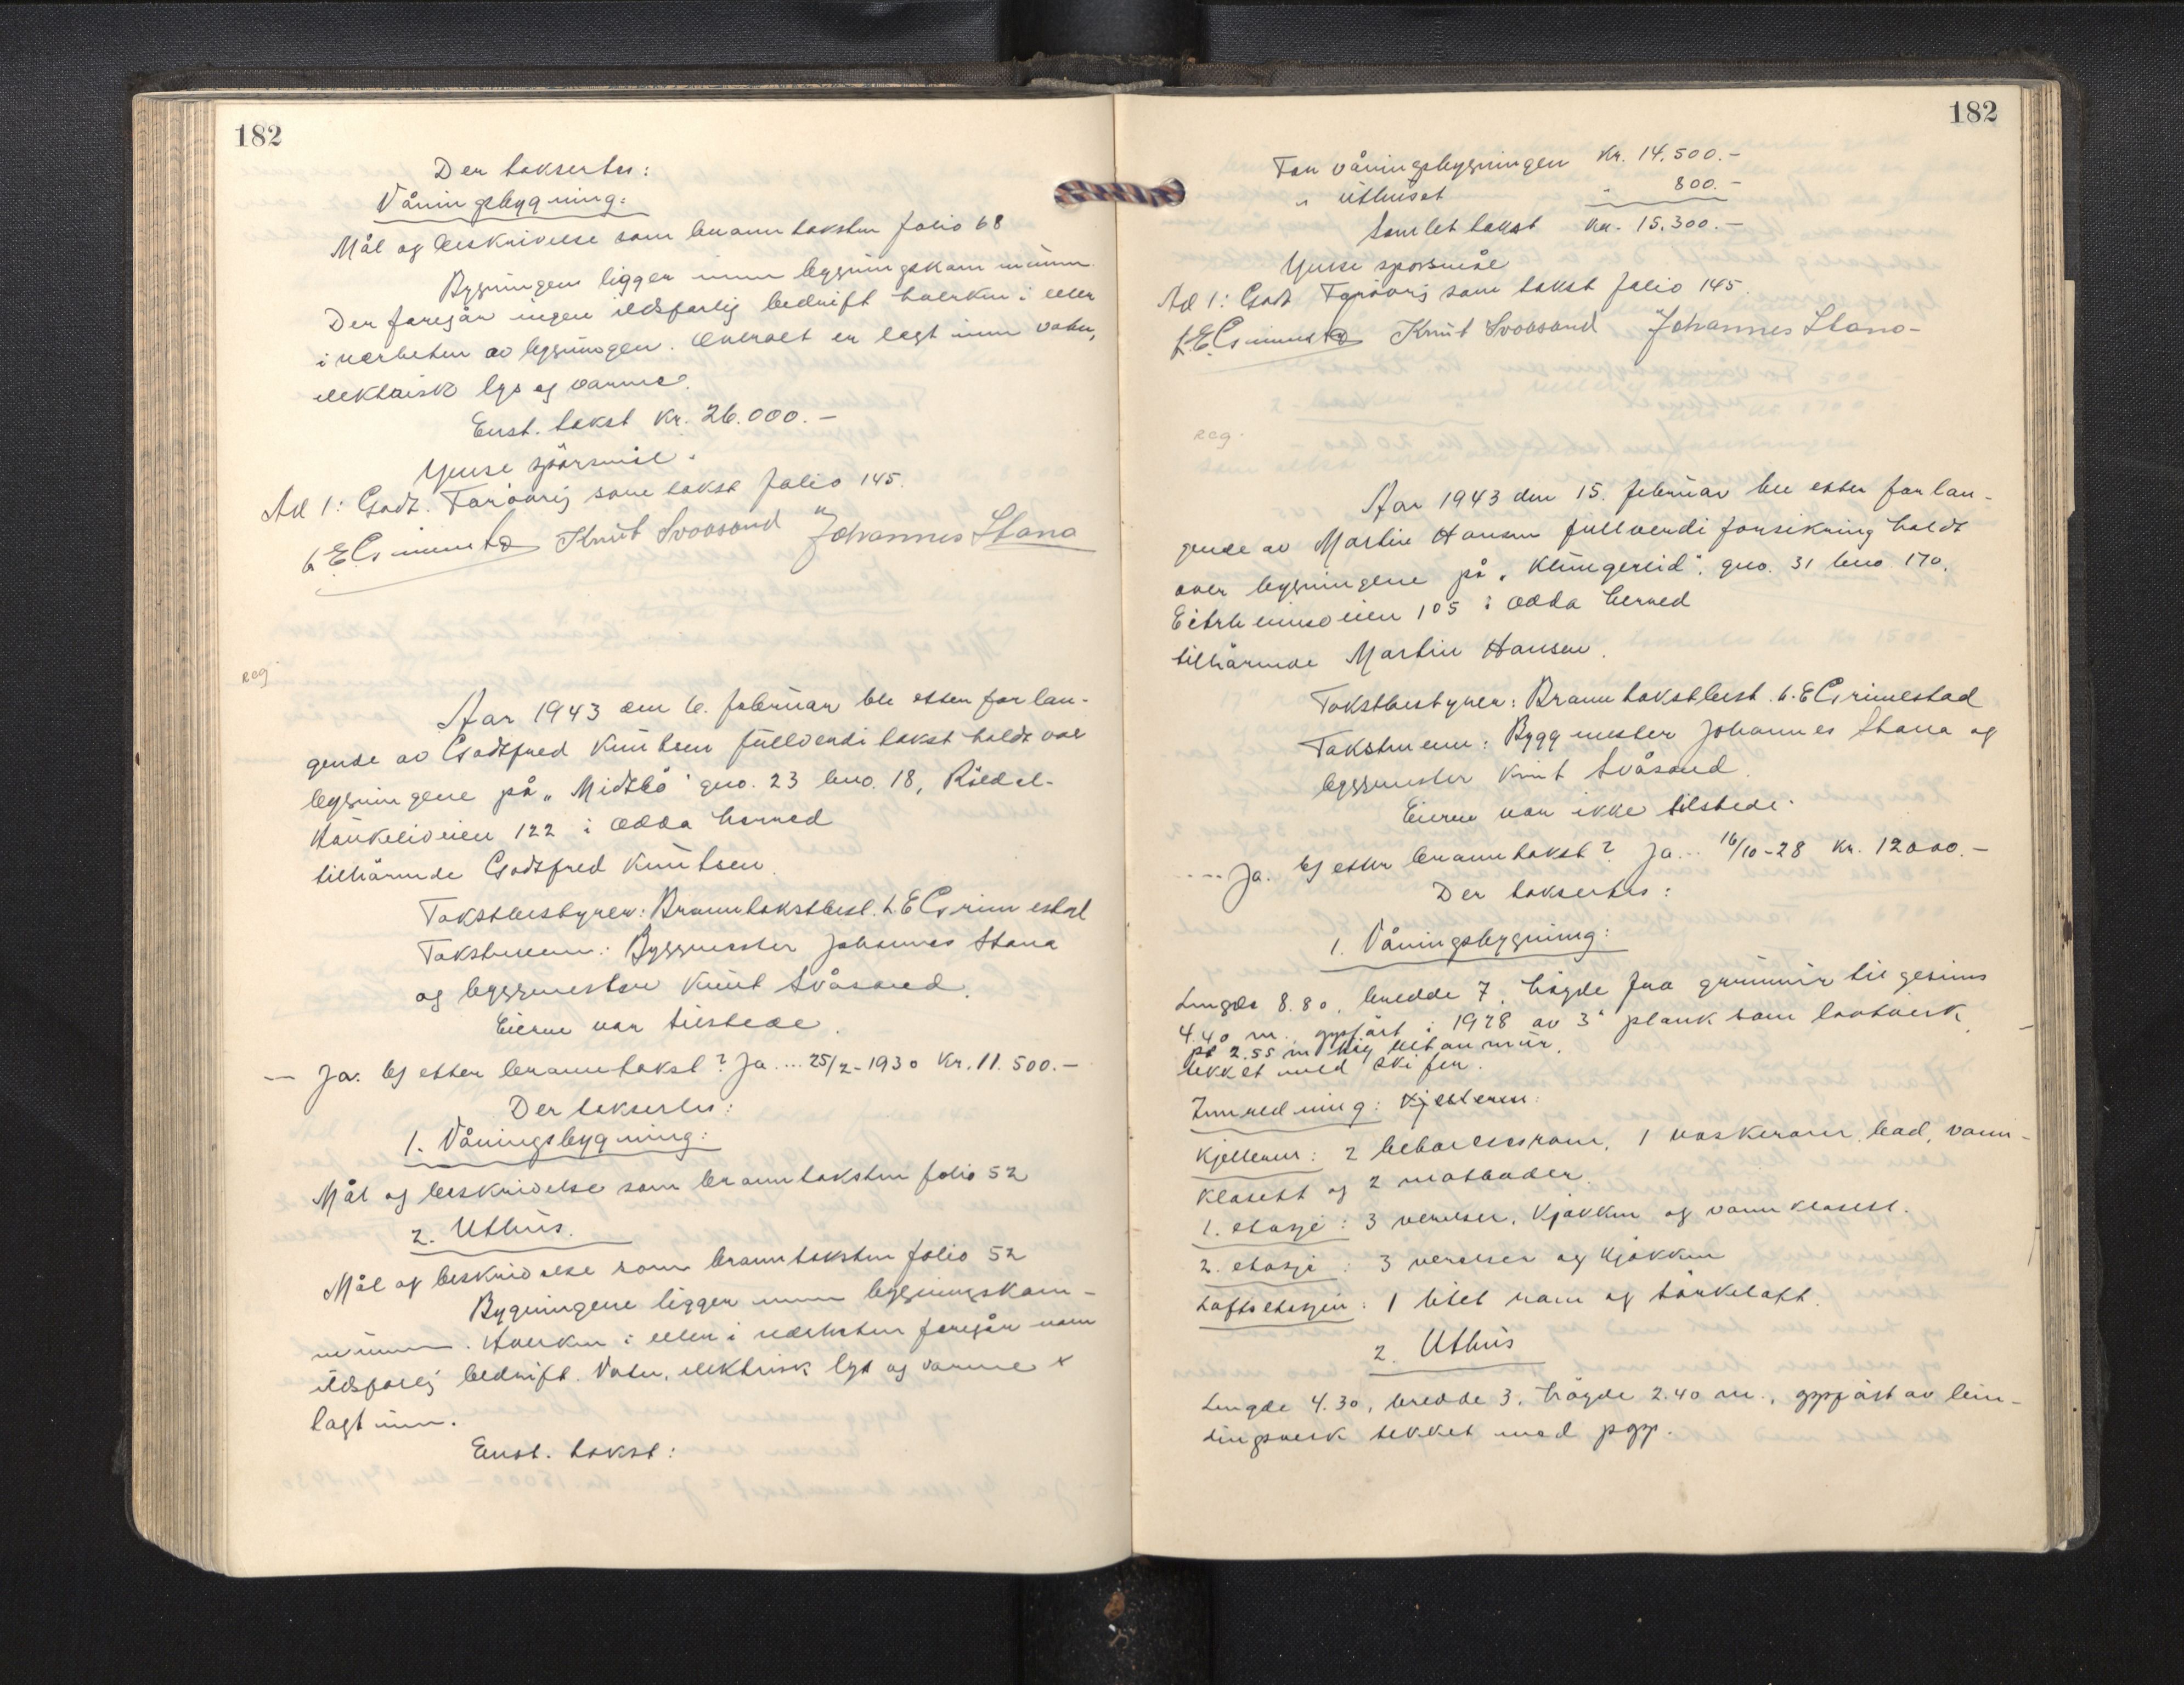 182
Der takseres:
Våningsbygning:
Mål og beskrivelse som branntaksten folio 68
Bygningen ligger innen bygningskommunen.
Der foregår ingen ildsfarlig bedrift hverken i eller
i nærheten av bygningen. Overalt er lagt inn vatn,
elektrisk lys og varme.
Enst. takst Kr. 26.000.-
Ymse spörsmål.
Ad 1: Godt. Forövrig som takst folio 145.
L. E. Grimestad Knut Svåsand Johannes Stana
reg
Aar 1943 den 6. februar ble etter forlan-
gende av Godtfred Knutsen fullverdi takst holdt over
bygningene på "Midtbö" gno. 23 bno. 18, Röldal-
Haukeliveien 122 i Odda herred
tilhörende Godtfred Knutsen.
Takstbestyrer: Branntakstbest. L. E. Grimestad
Takstmenn: Byggmester Johannes Stana
og byggmester Knut Svåsand.
Eieren var tilstede.
--- Ja. Ej etter branntakst? Ja.... 25/2-1930 Kr. 11.500.-
Der takseres:
1. Våningsbygning:
Mål og beskrivelse som branntaksten folio 52
2. Uthus.
Mål og beskrivelse som branntaksten folio 52
Bygningene ligger innen bygningskom-
munen. Hverken i eller i nærheten foregår noen
ildsfarlig bedrift. Vatn, elektrisk lys og varme er
lagt inn.
Enst. takst:
182
For våningsbygningen Kr. 14.500.-
" uthuset " 800.-
Samlet takst Kr. 15.300.-
Ymse spörsmål
Ad 1: Godt Forövrig som takst folio 145.
L. E. Grimestad Knut Svåsand Johannes Stana
reg.
Aar 1943 den 15. februar ble etter forlan-
gende av Martin Hansen fullverdi forsikring holdt
over bygningene på "Klungereid", gno. 31 bno. 170.
Eitrheimsveien 105 i Odda herred
tilhörende Martin Hansen.
Takstbestyrer: Branntakstbest. L. E. Grimestad
Takstmenn: Byggmester Johannes Stana og
byggmester Knut Svåsand.
Eieren var ikke tilstede.
---- Ja. Ej etter branntakst? Ja... 16/10-28 Kr. 12000.-
Der takseres:
1. Våningsbygning:
Lengde 8.80, bredde 7, högde fra grunnmur til gesims
4.40 m. oppfört i 1928 av 3" plank som laftverk
på 2.55 m höy betonmur.
tekket med skifer.
Innredning: Kjelleren:
Kjelleren: 2 beboelsesrom, 1 vaskerom, bad, vann-
klosett og 2 matboder.
1. etasje: 3 verelser, kjökken og vannklosett.
2. etasje: 3 verelser og kjökken
Loftsetasjen: 1 litet rom og törkeloft.
2. Uthus
Lengde 4.30, bredde 3, högde 2.40 m., oppfört av bin-
dingsverk tekket med papp.